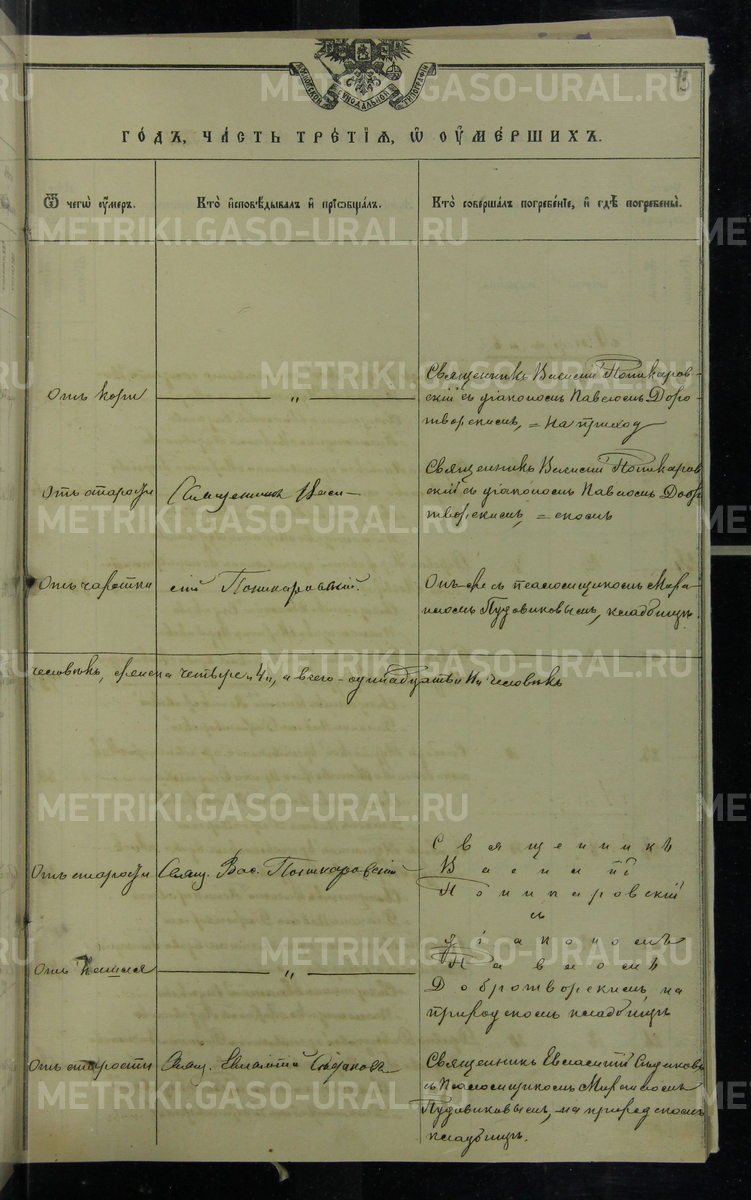 МОСКОВСКОЙ СѴНОДАЛЬНОЙ ТИПОГРАФІИ
ГО́ДЪ, ЧА́СТЬ ТРЕ́ТІѦ, Ѡ҆ ОУ҆МЕ́РШИХЪ.
Ѿ чегѡ̀ оу҆́меръ.
Кто̀ и҆сповѣ́дывалъ и҆ прїѡбща́лъ.
Кто̀ соверша́лъ погребе́нїе, и҆ гдѣ̀ погребены̀.
Отъ кори
— „ —
Священникъ Василій Поникаров-
скій съ діакономъ Павломъ Добро-
творскимъ, = на приход
Отъ старости
Священникъ Васи-
Священникъ Василій Поникаров
скій съ діакономъ Павломъ Добро
творскимъ, = скомъ
Отъ чахотки
лій Поникаровскій.
Онъ же съ псаломщикомъ Мира-
Пудовиковымъ, кладбищѣ.
человѣкъ, женска четыре „4„, а всего - одинадцать „11„ человѣкъ
Отъ старости
Свящ. Вас. Поникаровскій
Священникъ
Василій
Поникаровскій
съ
діакономъ
Павломъ
Добротворскимъ на
приходскомъ кладбищѣ
Отъ кашля
— „ —
Отъ старости
Свящ. Евлампій
Священникъ Евлампій
съ псаломщикомъ
Пудовиковымъ, на приходскомъ
кладбищѣ.
METRIKI.GASO-URAL.RU